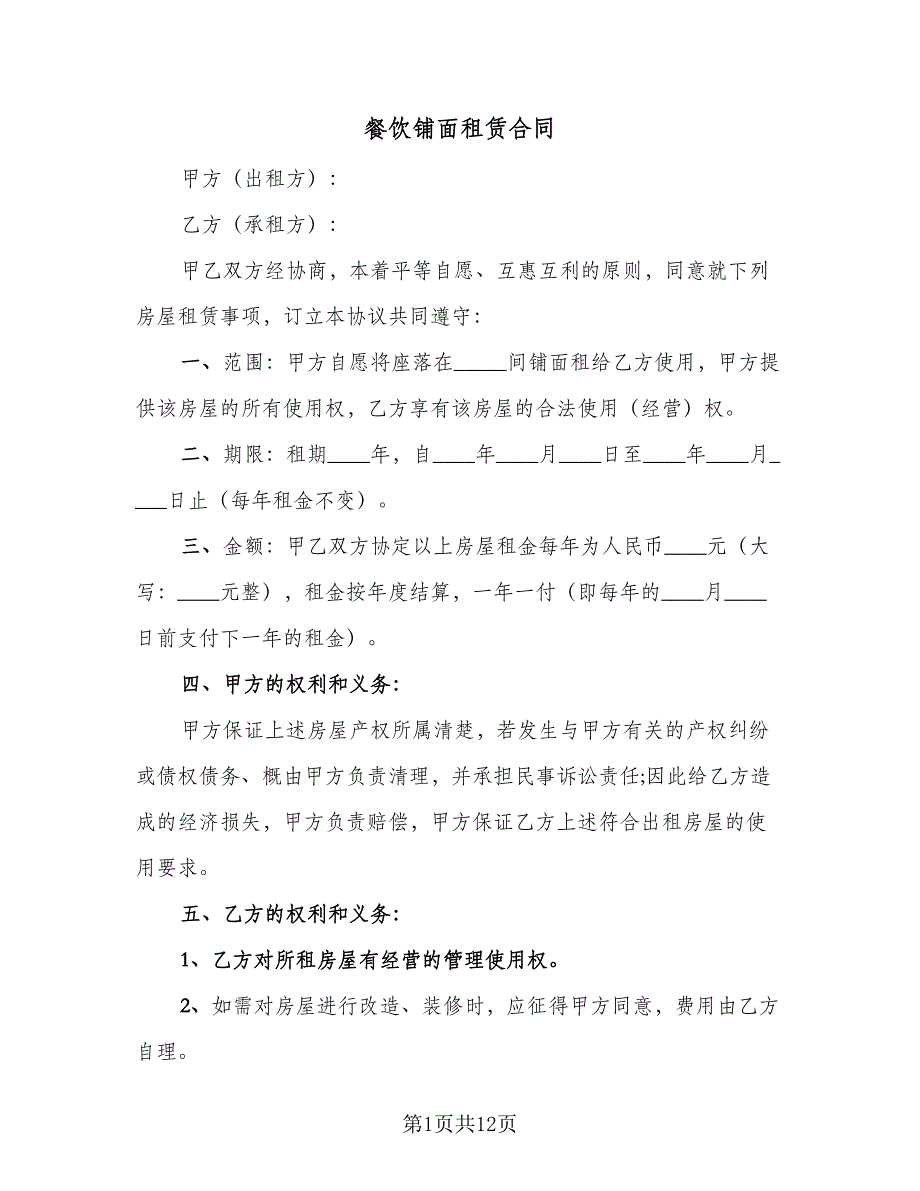 餐饮铺面租赁合同
甲方（出租方）：
乙方（承租方）：
甲乙双方经协商，本着平等自愿、互惠互利的原则，同意就下列
房屋租赁事项，订立本协议共同遵守：
一、范围：甲方自愿将座落在_____间铺面租给乙方使用，甲方提
供该房屋的所有使用权，乙方享有该房屋的合法使用（经营）权。
二、期限：租期____年，自____年____月____日至____年____月_
___日止（每年租金不变）。
三、金额：甲乙双方协定以上房屋租金每年为人民币____元（大
写：____元整），租金按年度结算，一年一付（即每年的____月____
日前支付下一年的租金）。
四、甲方的权利和义务：
甲方保证上述房屋产权所属清楚，若发生与甲方有关的产权纠纷
或债权债务、概由甲方负责清理，并承担民事诉讼责任;因此给乙方造
成的经济损失，甲方负责赔偿，甲方保证乙方上述符合出租房屋的使
用要求。
五、乙方的权利和义务：
1、乙方对所租房屋有经营的管理使用权。
2、如需对房屋进行改造、装修时，应征得甲方同意，费用由乙方
自理。
第1页共12页